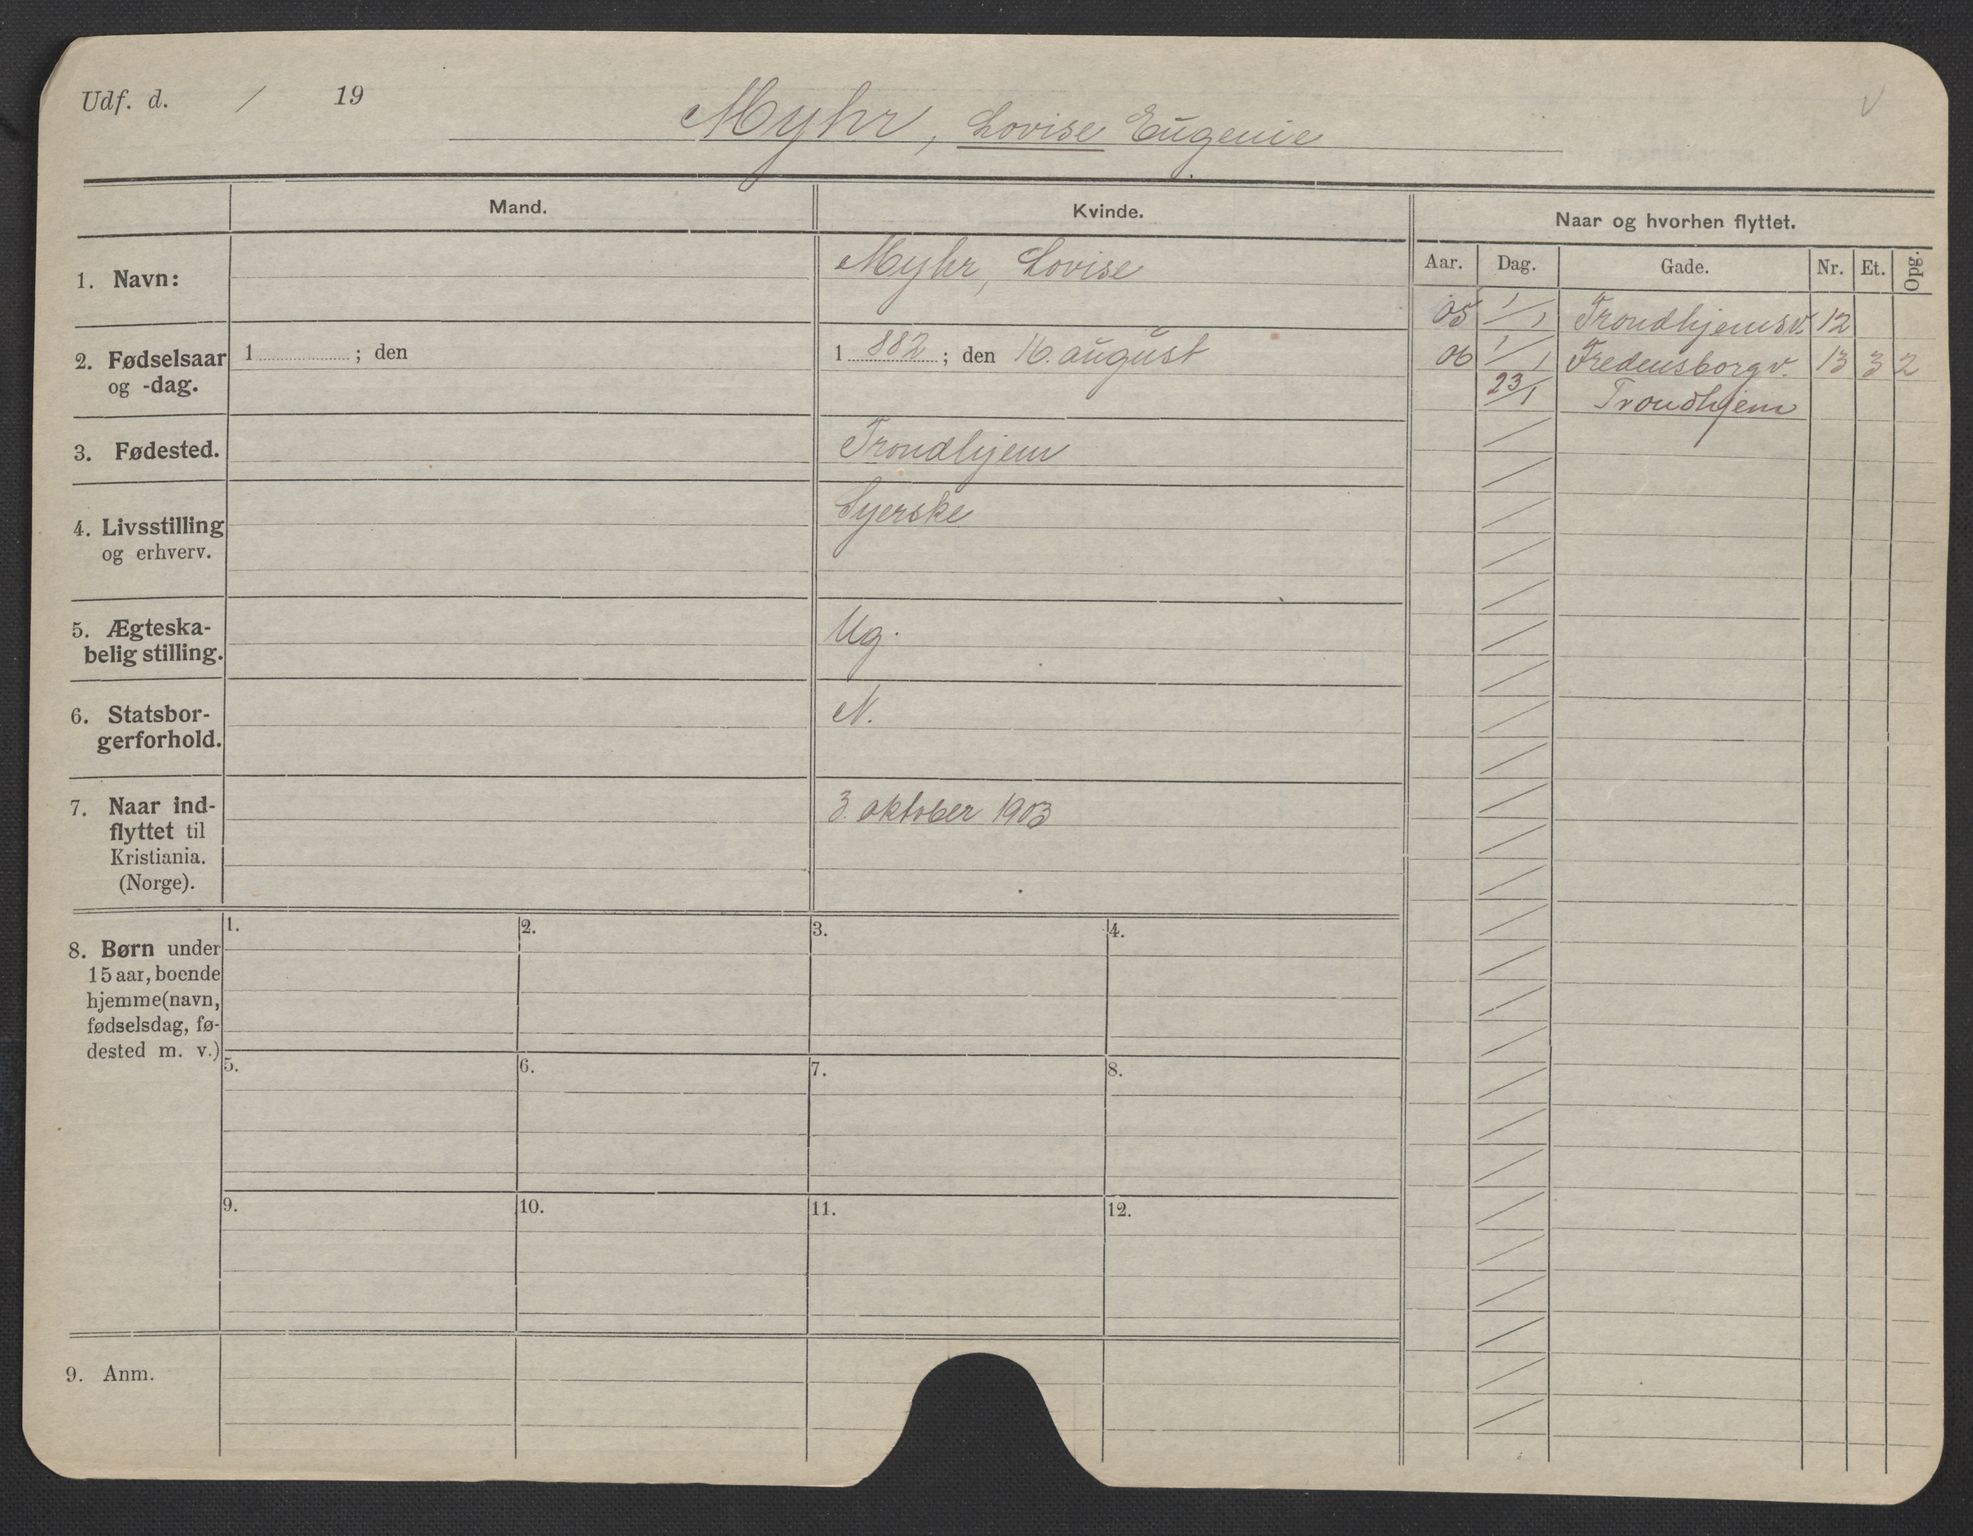 Udf. d. / 19
Myhr, Lovise Eugenie
v
Mand.
Kvinde.
Naar og hvorhen flyttet.
Aar. Dag. Gade. Nr. Et. Opg.
1. Navn:
Myhr, Lovise
05 1/1 Trondhjemsv. 12
06 1/1 Fredensborgv. 13 3 2
23/1 Trondhjem
2. Fødselsaar
og -dag.
1 ; den
1 882 ; den 16. august
3. Fødested.
Trondhjem
4. Livsstilling
og erhverv.
Syerske
5. Ægteska-
belig stilling.
Ug.
6. Statsbor-
gerforhold.
N.
7. Naar ind-
flyttet til
Kristiania.
(Norge).
3. oktober 1903
8. Børn under
15 aar, boende
hjemme (navn,
fødselsdag, fø-
dested m. v.)
1. 2. 3. 4.
5. 6. 7. 8.
9. 10. 11. 12.
9. Anm.